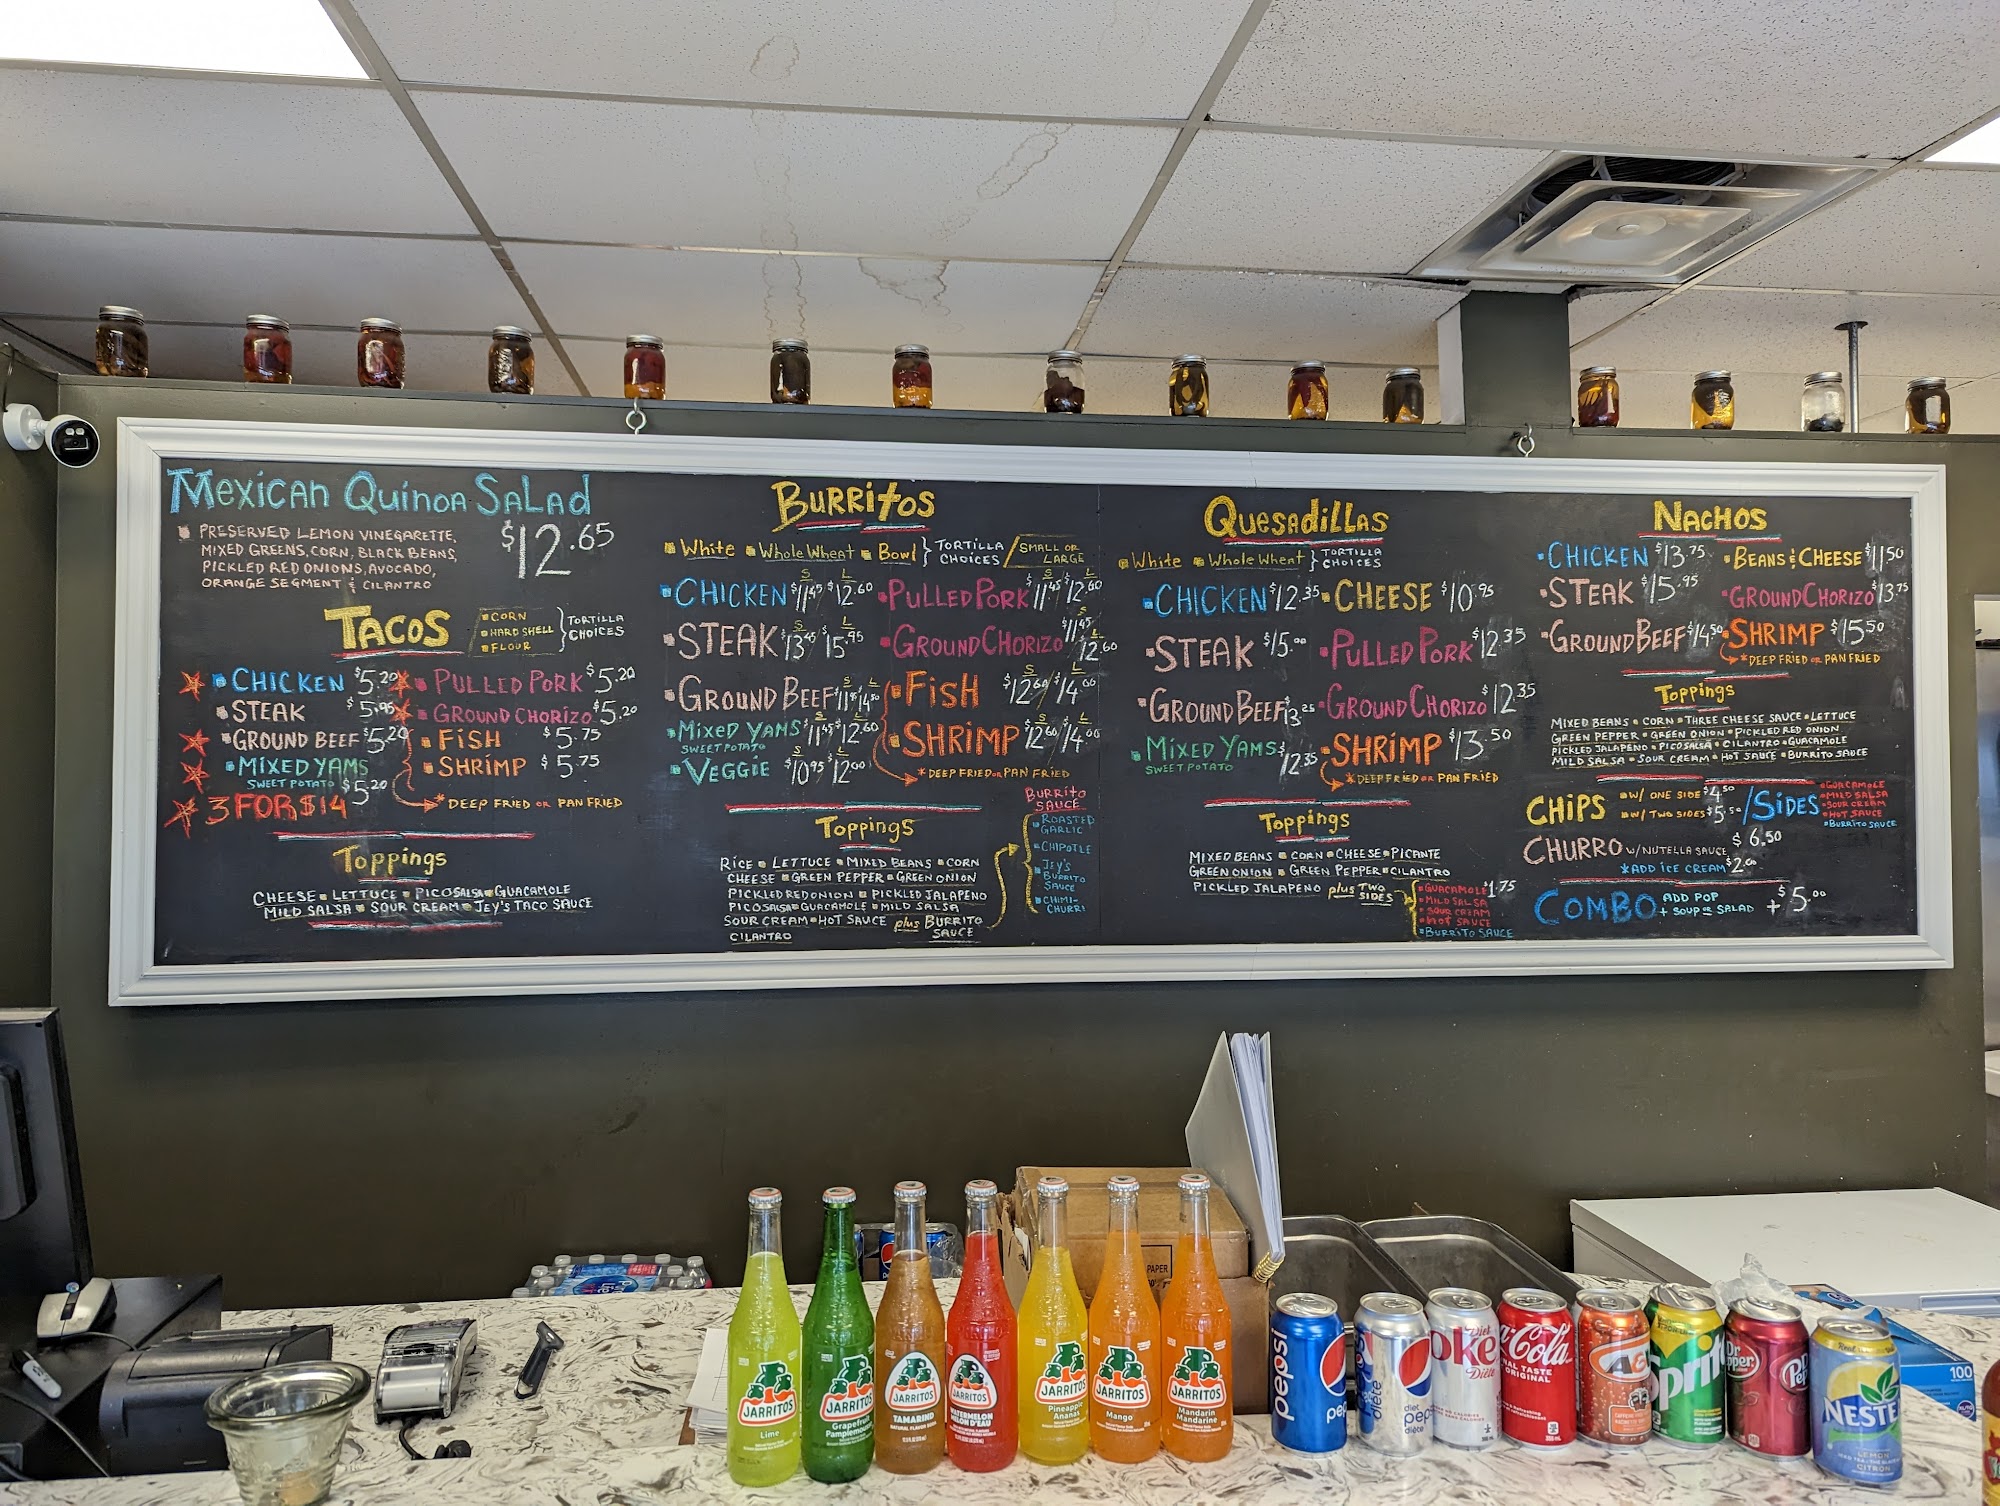 Mexican Quinoa Salad
PRESERVED LEMON VINEGARETTE,
MIXED GREENS, CORN, BLACK BEANS,
PICKLED RED ONIONS, AVOCADO,
ORANGE SEGMENT & CILANTRO
$12.65
TACOS
CORN
HARD SHELL
FLOUR
TORTILLA CHOICES
CHICKEN $5.20
STEAK $5.95
GROUND BEEF $5.20
MIXED YAMS
SWEET POTATO $5.20
3 FOR $14
PULLED PORK $5.20
GROUND CHORIZO $5.20
FISH $5.75
SHRIMP $5.75
*DEEP FRIED OR PAN FRIED
Toppings
CHEESE LETTUCE PICO SALSA GUACAMOLE
MILD SALSA SOUR CREAM JEY'S TACO SAUCE
BURRITOS
White Whole Wheat Bowl TORTILLA CHOICES / SMALL OR LARGE
CHICKEN S $11.45 L $12.60
STEAK S $13.45 L $15.95
GROUND BEEF S L $14.50
MIXED YAMS S $11.45 L $12.60
SWEET POTATO
VEGGIE S $10.95 L $12.00
PULLED PORK S $11.45 L $12.60
GROUND CHORIZO S $11.45 L $12.60
FISH S $12.60 / L $14.00
SHRIMP S $12.60 / L $14.00
*DEEP FRIED OR PAN FRIED
Toppings
RICE LETTUCE MIXED BEANS CORN
CHEESE GREEN PEPPER GREEN ONION
PICKLED RED ONION PICKLED JALAPENO
PICO SALSA GUACAMOLE MILD SALSA
SOUR CREAM HOT SAUCE plus BURRITO SAUCE
CILANTRO
BURRITO SAUCE
ROASTED GARLIC
CHIPOTLE
JEY'S BURRITO SAUCE
CHIMI-CHURRI
QUESADILLAS
White Whole Wheat TORTILLA CHOICES
CHICKEN $12.35
STEAK $15.00
GROUND BEEF $13.25
MIXED YAMS $12.35
SWEET POTATO
CHEESE $10.95
PULLED PORK $12.35
GROUND CHORIZO $12.35
SHRIMP $13.50
*DEEP FRIED OR PAN FRIED
Toppings
MIXED BEANS CORN CHEESE PICANTE
GREEN ONION GREEN PEPPER CILANTRO
PICKLED JALAPENO plus TWO SIDES
GUACAMOLE $1.75
MILD SALSA
SOUR CREAM
HOT SAUCE
BURRITO SAUCE
NACHOS
CHICKEN $13.75
STEAK $15.95
GROUND BEEF $14.50
BEANS & CHEESE $11.50
GROUND CHORIZO $13.75
SHRIMP $15.50
*DEEP FRIED OR PAN FRIED
Toppings
MIXED BEANS CORN THREE CHEESE SAUCE LETTUCE
GREEN PEPPER GREEN ONION PICKLED RED ONION
PICKLED JALAPENO PICO SALSA CILANTRO GUACAMOLE
MILD SALSA SOUR CREAM HOT SAUCE BURRITO SAUCE
CHIPS W/ ONE SIDE $4.50
W/ TWO SIDES $5.50
/SIDES
GUACAMOLE
MILD SALSA
SOUR CREAM
HOT SAUCE
BURRITO SAUCE
CHURRO W/NUTELLA SAUCE $6.50
*ADD ICE CREAM $2.00
COMBO ADD POP
+ SOUP OR SALAD + $5.00
JARRITOS
Lime
JARRITOS
Grapefruit
Pamplemousse
JARRITOS
TAMARIND
JARRITOS
WATERMELON
MELON D'EAU
JARRITOS
Pineapple
Ananas
JARRITOS
Mango
JARRITOS
Mandarin
Mandarine
PAPER
pepsi
diet pepsi
diète
Diet Coke
Diète
Coca-Cola
ORIGINAL TASTE
ORIGINAL
A&W
Sprite
Dr Pepper
NESTEA
LEMON
CITRON
100